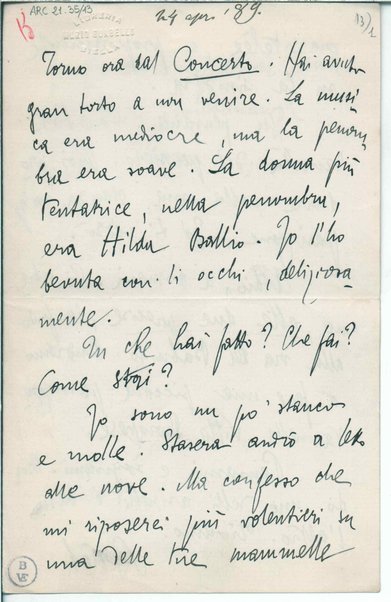 ARC 21.35/13
24 apr. 89.
13/1
Torno ora dal Concerto. Hai avuto
gran torto a non venire. La musi-
ca era mediocre, ma la penom
bra era soave. La donna più
tentatrice, nella penombra,
era Hilda Ballio. Io l'ho
bevuta con li occhi, deliziosa-
mente.
Tu che hai fatto? Che fai?
Come stai?
Io sono un po' stanco
e molle. Stasera andrò a letto
alle nove. Ma confesso che
mi riposerei più volentieri su
una delle tue mammelle
B
VE